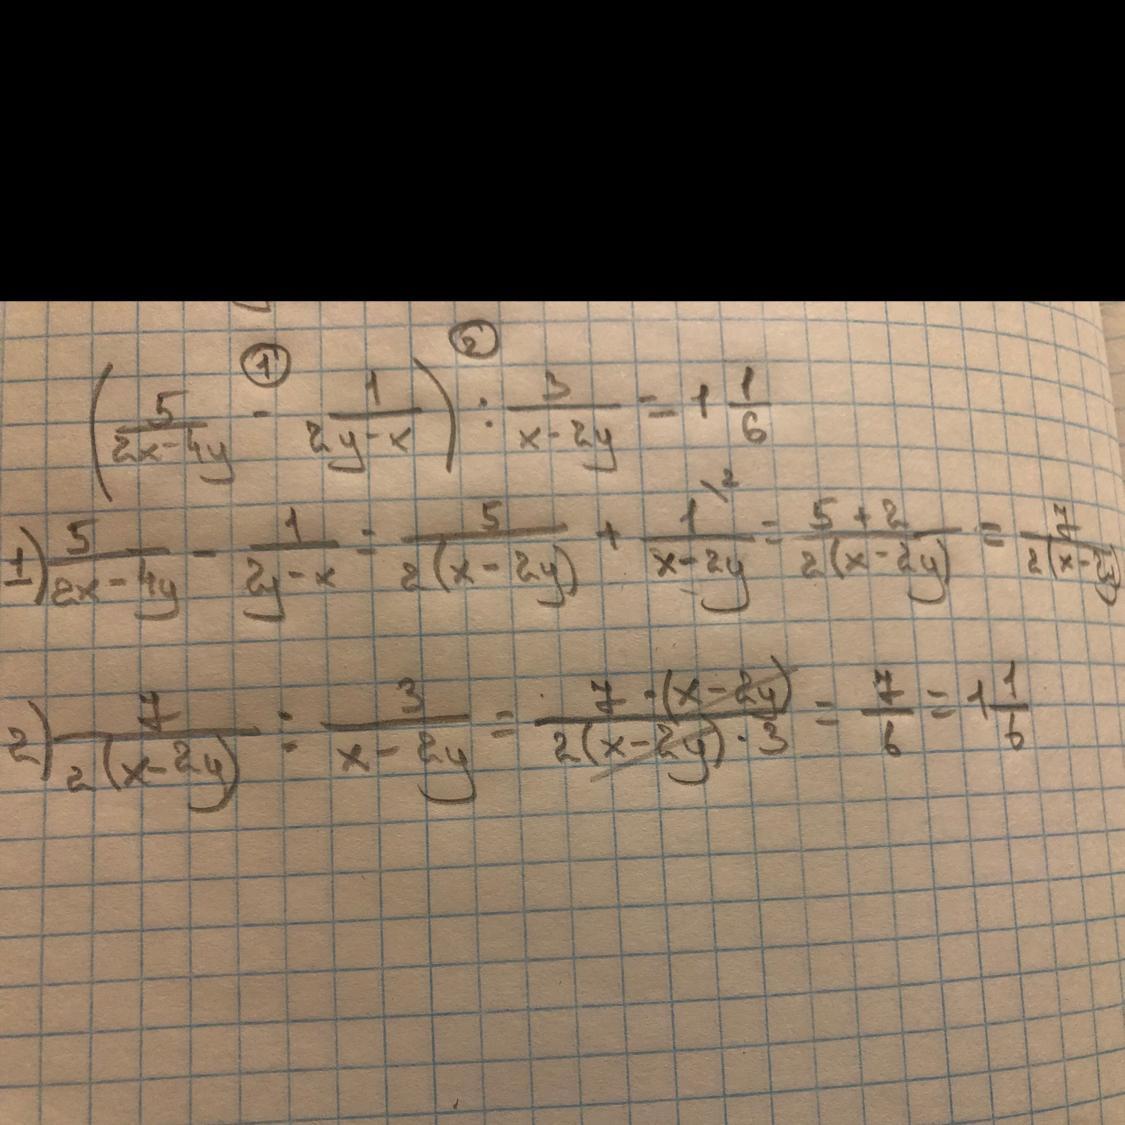 (5/(2x-4y) - 1/(2y-x)) : 3/(x-2y) = 1 1/6
1) 5/(2x-4y) - 1/(2y-x) = 5/(2(x-2y)) + 1\2/(x-2y) = (5+2)/(2(x-2y)) = 7/(2(x-2y))
2) 7/(2(x-2y)) : 3/(x-2y) = (7·(x-2y))/(2(x-2y)·3) = 7/6 = 1 1/6